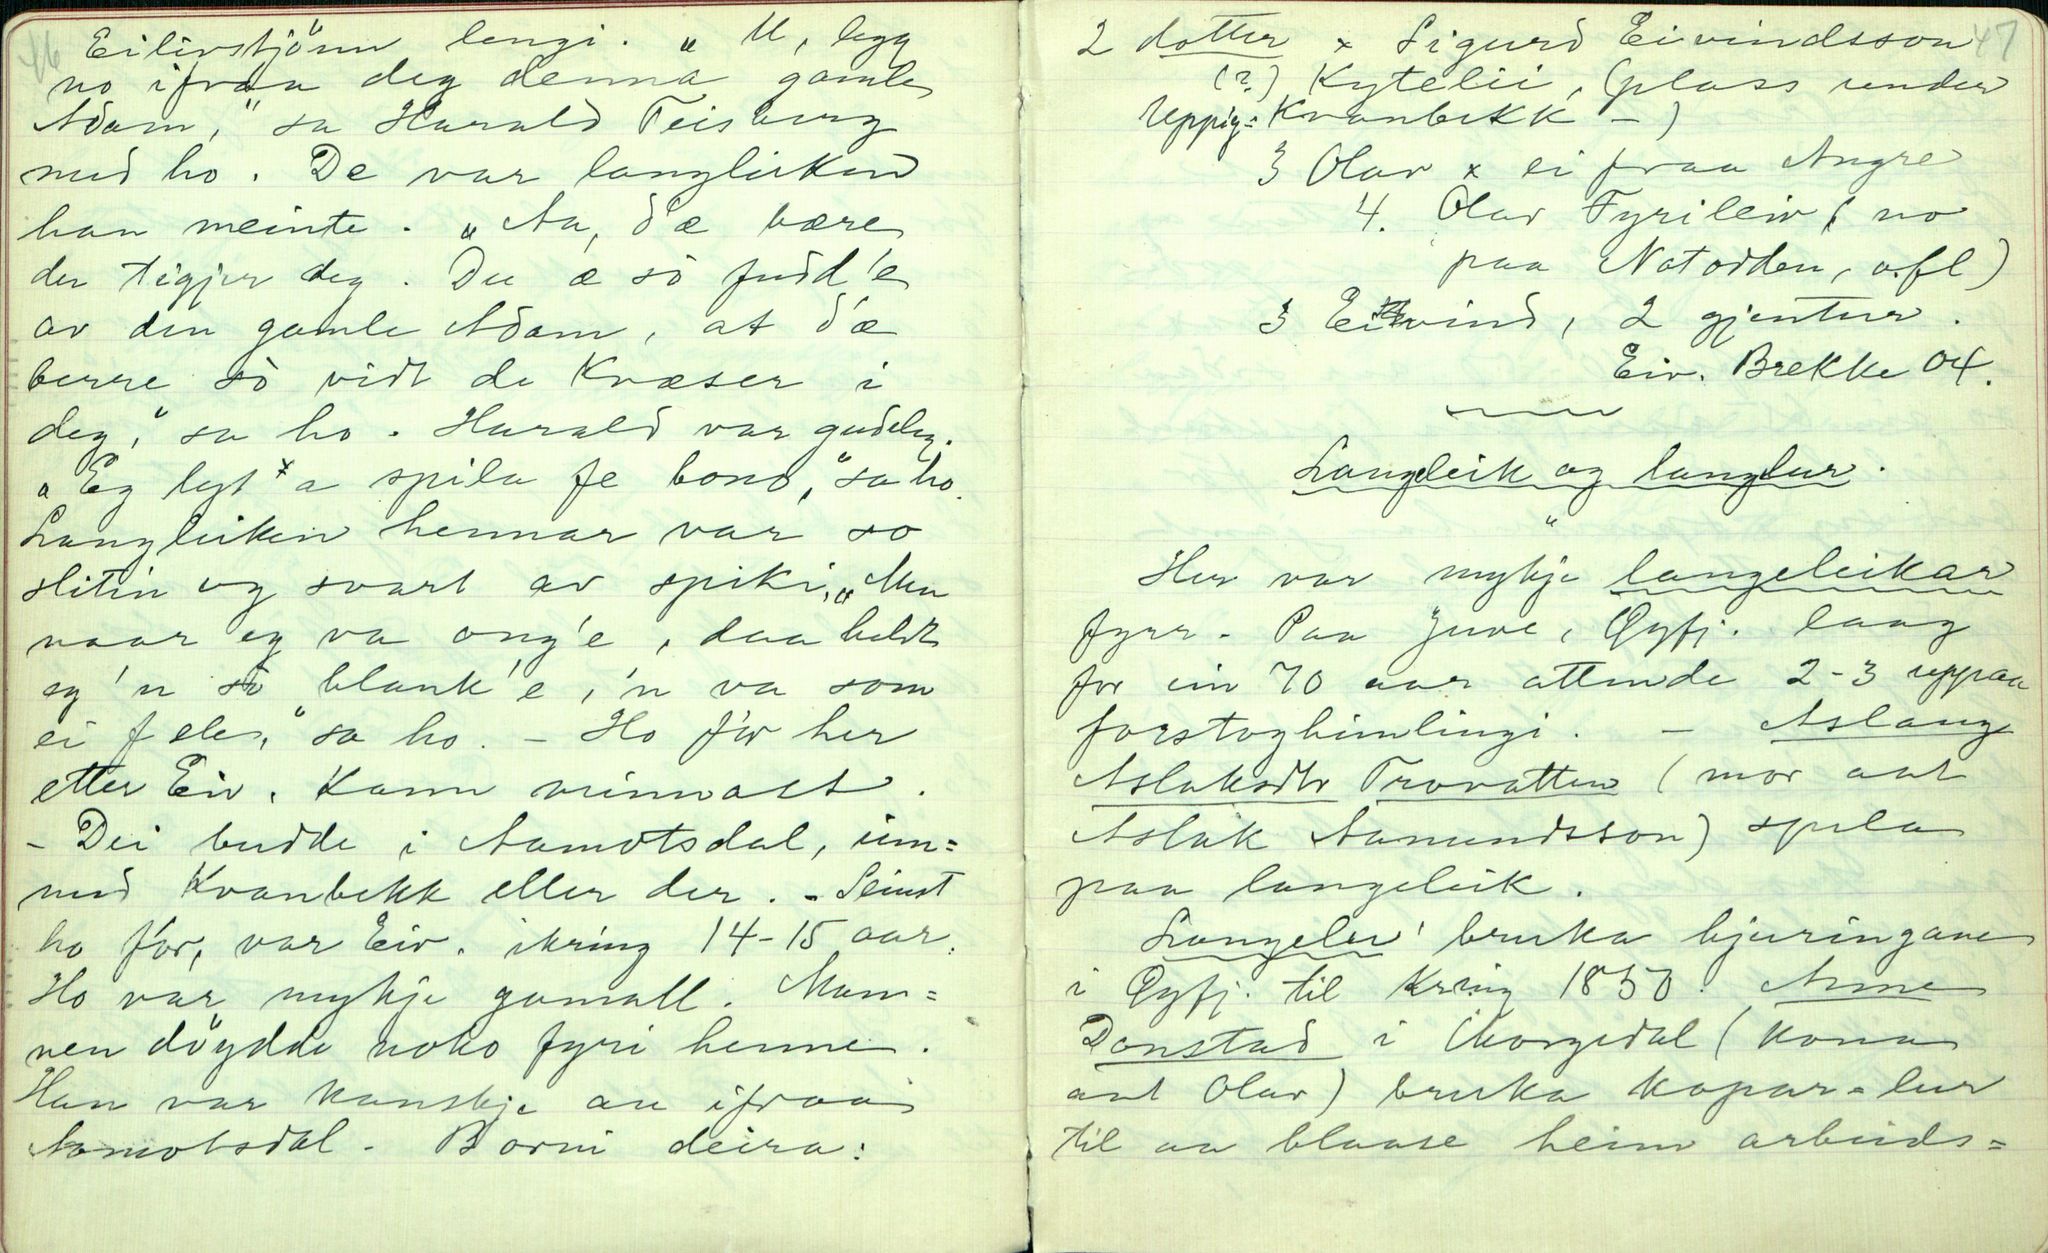 46
Eilivstjönn lengi. „U, legg
no ifraa deg denna gamle
Adam," sa Harald Teisberg
med ho. De var langleiken
han meinte. „Aa, d'æ bære
der tigjer deg. Du æ sò fudd'e
av den gamle Adam, at d'æ
berre sò vidt de kvæser i
deg," sa ho. Harald var gudeleg.
„Eg lyt x a spila fe bono," sa ho.
Langleiken hennar var so
slitin og svart av spiki, „Men
naar eg va ong'e, daa heldt
eg'n sò blank'e, 'n va som
ei fele," sa ho. - Ho fór her
etter Eiv. kann minnast.
- Dei budde i Aamotsdal, im=
med Kvanbekk eller der. - Seinst
ho fór, var Eiv. ikring 14-15 aar.
Ho var mykje gamall. Man=
nen döydde noko fyri henne.
Han var kanskje au ifraa
Aamotsdal. Borni deira:
47
2 dotter x Sigurd Eivindsson
(?) Kytelii, (plass under
Uppig= Kvanbekk -)
3 Olav x ei fraa Augre
4. Olav Fyrileiv (no
paa Notodden, o.fl)
3 Eivind, 2 gjentur.
Eiv. Brekke 04.
Langleik og langlur.
"
Her var mykje langeleikar
fyrr. Paa Juve, Øyfj. laag
for ein 70 aar attende 2-3 uppaa
forstoghimlingi. - Aslaug
Aslaksdtr Trovatten (mor aat
Aslak Aamundsson) spela
paa langeleik.
Langelur bruka hjuringane
i Øyfj. til kring 1850. Anne
Donstad i Morgedal (kona
aat Olav) bruka kopar=lur
til aa blaase heim arbeids=